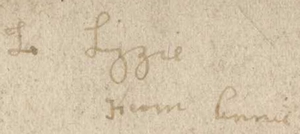 To Lizzie
from Annie